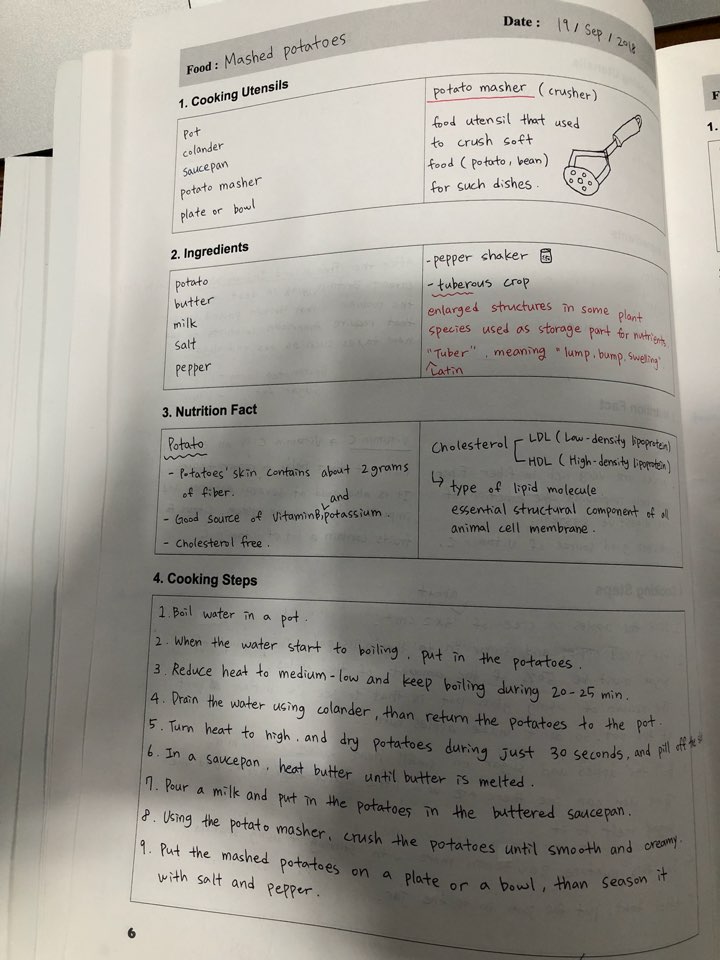 Food : Mashed potatoes
Date : 19 / Sep / 2018
1. Cooking Utensils
pot
colander
saucepan
potato masher
plate or bowl
potato masher (crusher)
food utensil that used
to crush soft
food (potato, bean)
for such dishes.
2. Ingredients
potato
butter
milk
salt
pepper
- pepper shaker
- tuberous crop
enlarged structures in some plant
species used as storage part for nutrients
"Tuber", meaning "lump, bump, swelling"
Latin
3. Nutrition Fact
Potato
- Potatoes' skin contains about 2 grams
of fiber.
and
- Good source of Vitamin B, potassium.
- Cholesterol free.
Cholesterol LDL (Low-density lipoprotein)
HDL (High-density lipoprotein)
↳ type of lipid molecule
essential structural component of all
animal cell membrane.
4. Cooking Steps
1. Boil water in a pot.
2. When the water start to boiling, put in the potatoes.
3. Reduce heat to medium-low and keep boiling during 20-25 min.
4. Drain the water using colander, than return the potatoes to the pot.
5. Turn heat to high, and dry potatoes during just 30 seconds, and pill off the
6. In a saucepan, heat butter until butter is melted.
7. Pour a milk and put in the potatoes in the buttered saucepan.
8. Using the potato masher, crush the potatoes until smooth and creamy.
9. Put the mashed potatoes on a plate or a bowl, than season it
with salt and pepper.
6
F
1.